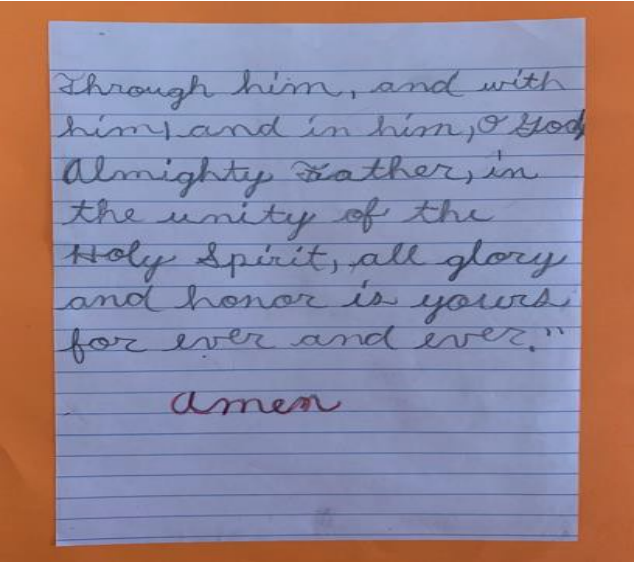 Through him, and with
him, and in him, O God,
Almighty Father, in
the unity of the
Holy Spirit, all glory
and honor is yours
for ever and ever."
amen